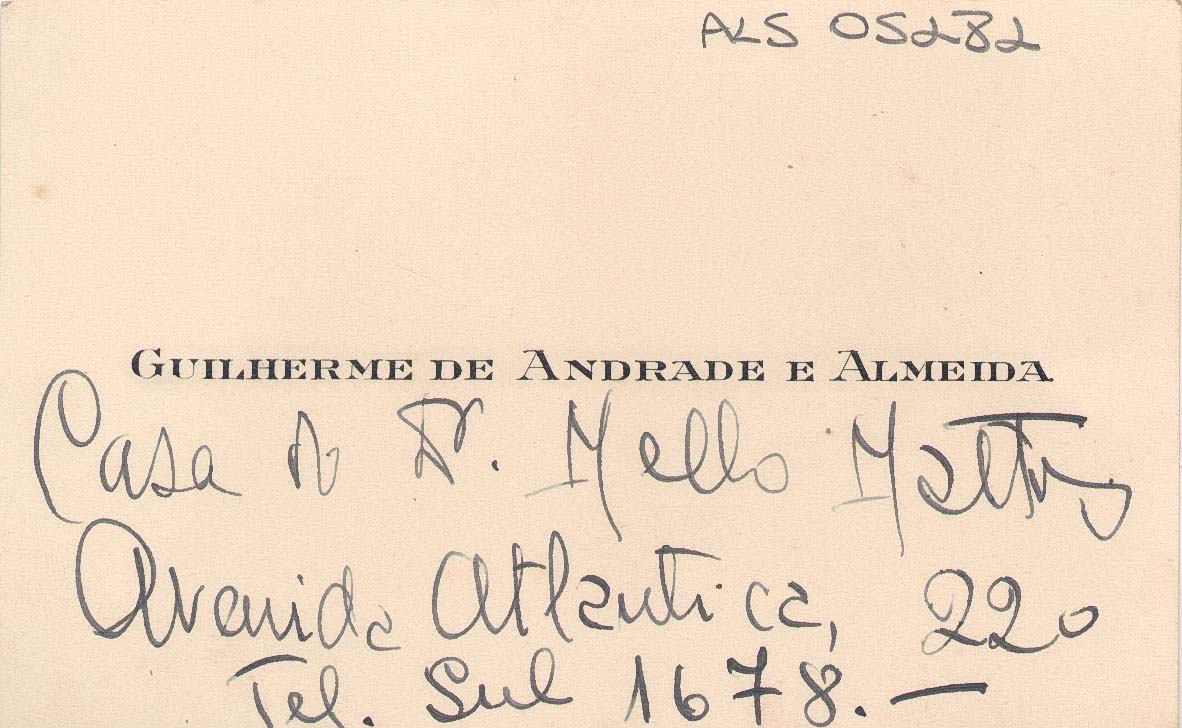 ALS 05282
GUILHERME DE ANDRADE E ALMEIDA
Casa do Dr. Mello Mattos
Avenida Atlantica, 220
Tel. Sul 1678. —